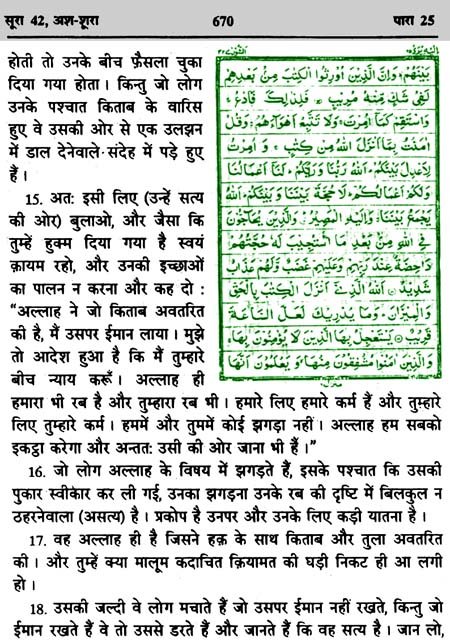 सूरा 42, अश-शूरा
670
पारा 25
होती तो उनके बीच फ़ैसला चुका
दिया गया होता। किन्तु जो लोग
उनके पश्चात किताब के वारिस
हुए वे उसकी ओर से एक उलझन
में डाल देनेवाले संदेह में पड़े हुए
हैं।
15. अत: इसी लिए (उन्हें सत्य
की ओर) बुलाओ, और जैसा कि
तुम्हें हुक्म दिया गया है स्वयं
क़ायम रहो, और उनकी इच्छाओं
का पालन न करना और कह दो :
“अल्लाह ने जो किताब अवतरित
की है, मैं उसपर ईमान लाया। मुझे
तो आदेश हुआ है कि मैं तुम्हारे
बीच न्याय करूँ। अल्लाह ही
بَيْنَهُمْ وَاِنَّ الَّذِيْنَ اُوْرِثُوا الْكِتٰبَ مِنْ بَعْدِهِمْ
لَفِيْ شَكٍّ مِّنْهُ مُرِيْبٍ فَلِذٰلِكَ فَادْعُ
وَاسْتَقِمْ كَمَآ اُمِرْتَ وَلَا تَتَّبِعْ اَهْوَآءَهُمْ وَقُلْ
اٰمَنْتُ بِمَآ اَنْزَلَ اللّٰهُ مِنْ كِتٰبٍ وَاُمِرْتُ
لِاَعْدِلَ بَيْنَكُمْ اَللّٰهُ رَبُّنَا وَرَبُّكُمْ لَنَآ اَعْمَالُنَا
وَلَكُمْ اَعْمَالُكُمْ لَا حُجَّةَ بَيْنَنَا وَبَيْنَكُمْ اَللّٰهُ
يَجْمَعُ بَيْنَنَا وَاِلَيْهِ الْمَصِيْرُ وَالَّذِيْنَ يُحَآجُّوْنَ
فِي اللّٰهِ مِنْ بَعْدِ مَا اسْتُجِيْبَ لَهٗ حُجَّتُهُمْ
دَاحِضَةٌ عِنْدَ رَبِّهِمْ وَعَلَيْهِمْ غَضَبٌ وَّلَهُمْ عَذَابٌ
شَدِيْدٌ اَللّٰهُ الَّذِيْٓ اَنْزَلَ الْكِتٰبَ بِالْحَقِّ
وَالْمِيْزَانَ وَمَا يُدْرِيْكَ لَعَلَّ السَّاعَةَ
قَرِيْبٌ يَسْتَعْجِلُ بِهَا الَّذِيْنَ لَا يُؤْمِنُوْنَ بِهَا
وَالَّذِيْنَ اٰمَنُوْا مُشْفِقُوْنَ مِنْهَا وَيَعْلَمُوْنَ اَنَّهَا
हमारा भी रब है और तुम्हारा रब भी। हमारे लिए हमारे कर्म हैं और तुम्हारे
लिए तुम्हारे कर्म। हममें और तुममें कोई झगड़ा नहीं। अल्लाह हम सबको
इकट्ठा करेगा और अन्तत: उसी की ओर जाना भी है।”
16. जो लोग अल्लाह के विषय में झगड़ते हैं, इसके पश्चात कि उसकी
पुकार स्वीकार कर ली गई, उनका झगड़ना उनके रब की दृष्टि में बिलकुल न
ठहरनेवाला (असत्य) है। प्रकोप है उनपर और उनके लिए कड़ी यातना है।
17. वह अल्लाह ही है जिसने हक़ के साथ किताब और तुला अवतरित
की। और तुम्हें क्या मालूम कदाचित क़ियामत की घड़ी निकट ही आ लगी
हो।
18. उसकी जल्दी वे लोग मचाते हैं जो उसपर ईमान नहीं रखते, किन्तु जो
ईमान रखते हैं वे तो उससे डरते हैं और जानते हैं कि वह सत्य है। जान लो,